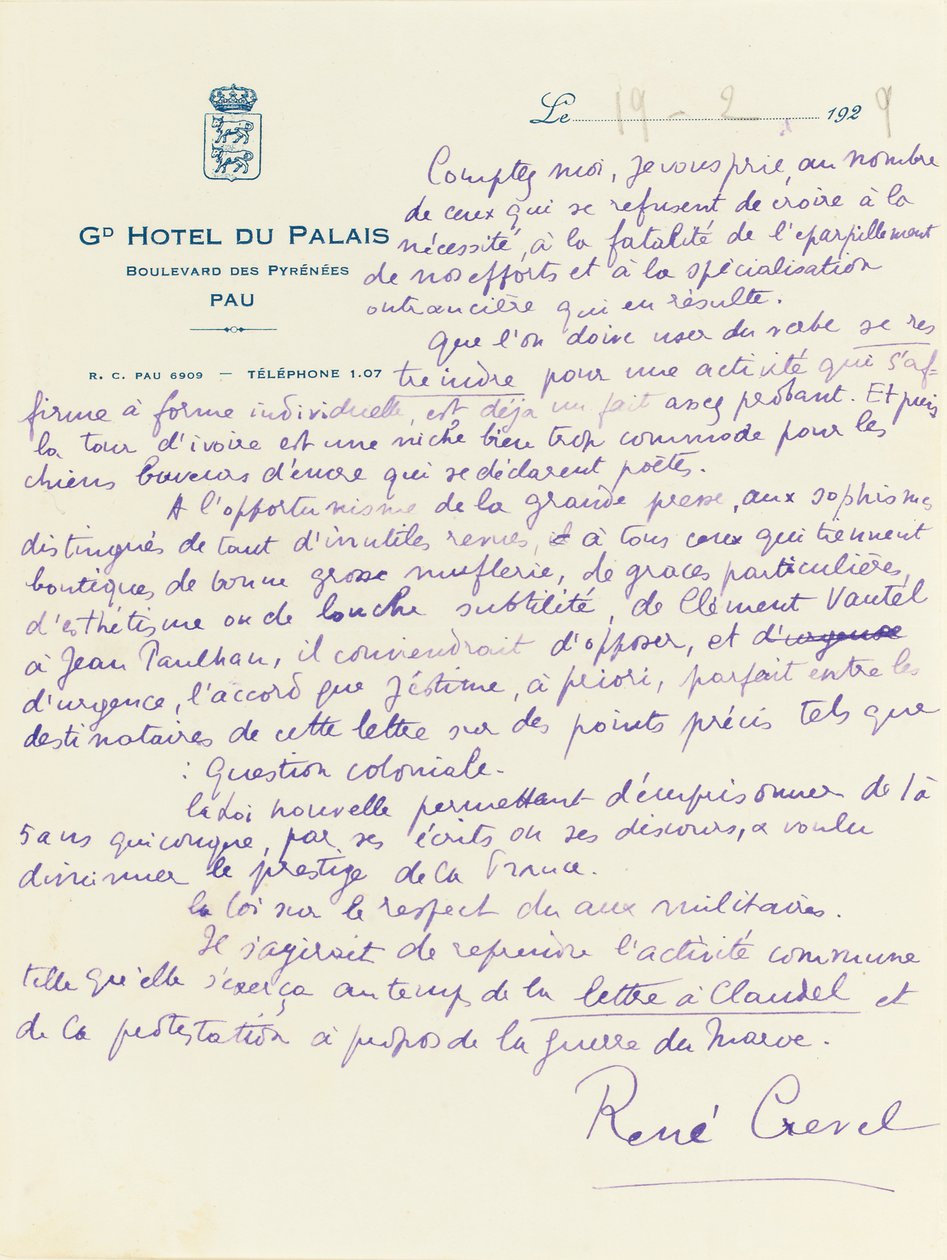 Le 19 - 2 1929
Comptez moi, je vous prie, au nombre
de ceux qui se refusent de croire à la
GD HOTEL DU PALAIS
nécessité, à la fatalité de l'eparpillement
BOULEVARD DES PYRÉNÉES
de nos efforts et à la spécialisation
PAU
outrancière qui en résulte.
Que l'on doive user du verbe se res
R. C. PAU 6909 — TÉLÉPHONE 1.07
treindre pour une activité qui s'af-
firme à forme individuelle, est déja un fait assez probant. Et puis
la tour d'ivoire est une niche bien trop commode pour les
chiens buveurs d'encre qui se déclarent poètes.
A l'opportunisme de la grande presse, aux sophismes
distingués de tant d'inutiles revues, à tous ceux qui tiennent
boutiques de bonne grosse muflerie, de graces particulières,
d'esthétisme ou de louche subtilité, de Clément Vautel
à Jean Paulhan, il conviendrait d'opposer, et d'urgence
d'urgence, l'accord que j'estime, à priori, parfait entre les
destinataires de cette lettre sur des points précis tels que
: Question coloniale.
la Loi nouvelle permettant d'emprisonner de 1 à
5 ans quiconque, par ses écrits ou ses discours, a voulu
diminuer le prestige de la France.
la loi sur le respect du aux militaires.
Il s'agirait de reprendre l'activité commune
telle qu'elle s'exerça au temps de la lettre à Claudel et
de la protestation à propos de la guerre du Maroc.
René Crevel